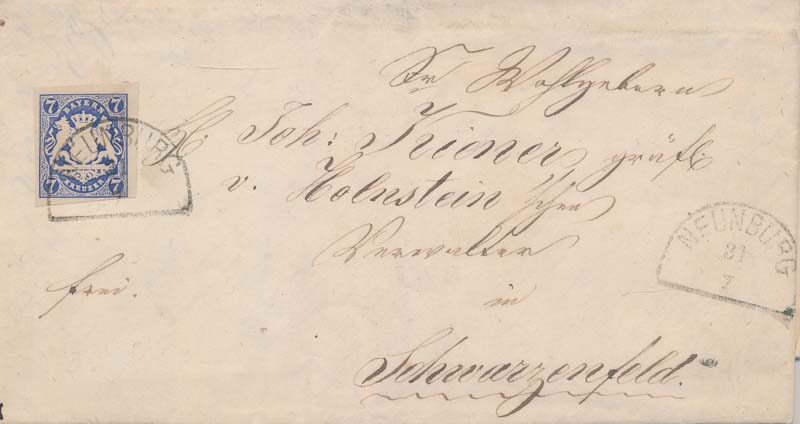 7 BAYERN 7
7 KREUZER 7
NEUNBURG
Sr Wohlgeborn
H: Joh: Kiener gräfl:
v. Holnstein'schen
Verwalter
frei.
in
Schwarzenfeld.
NEUNBURG
31
7